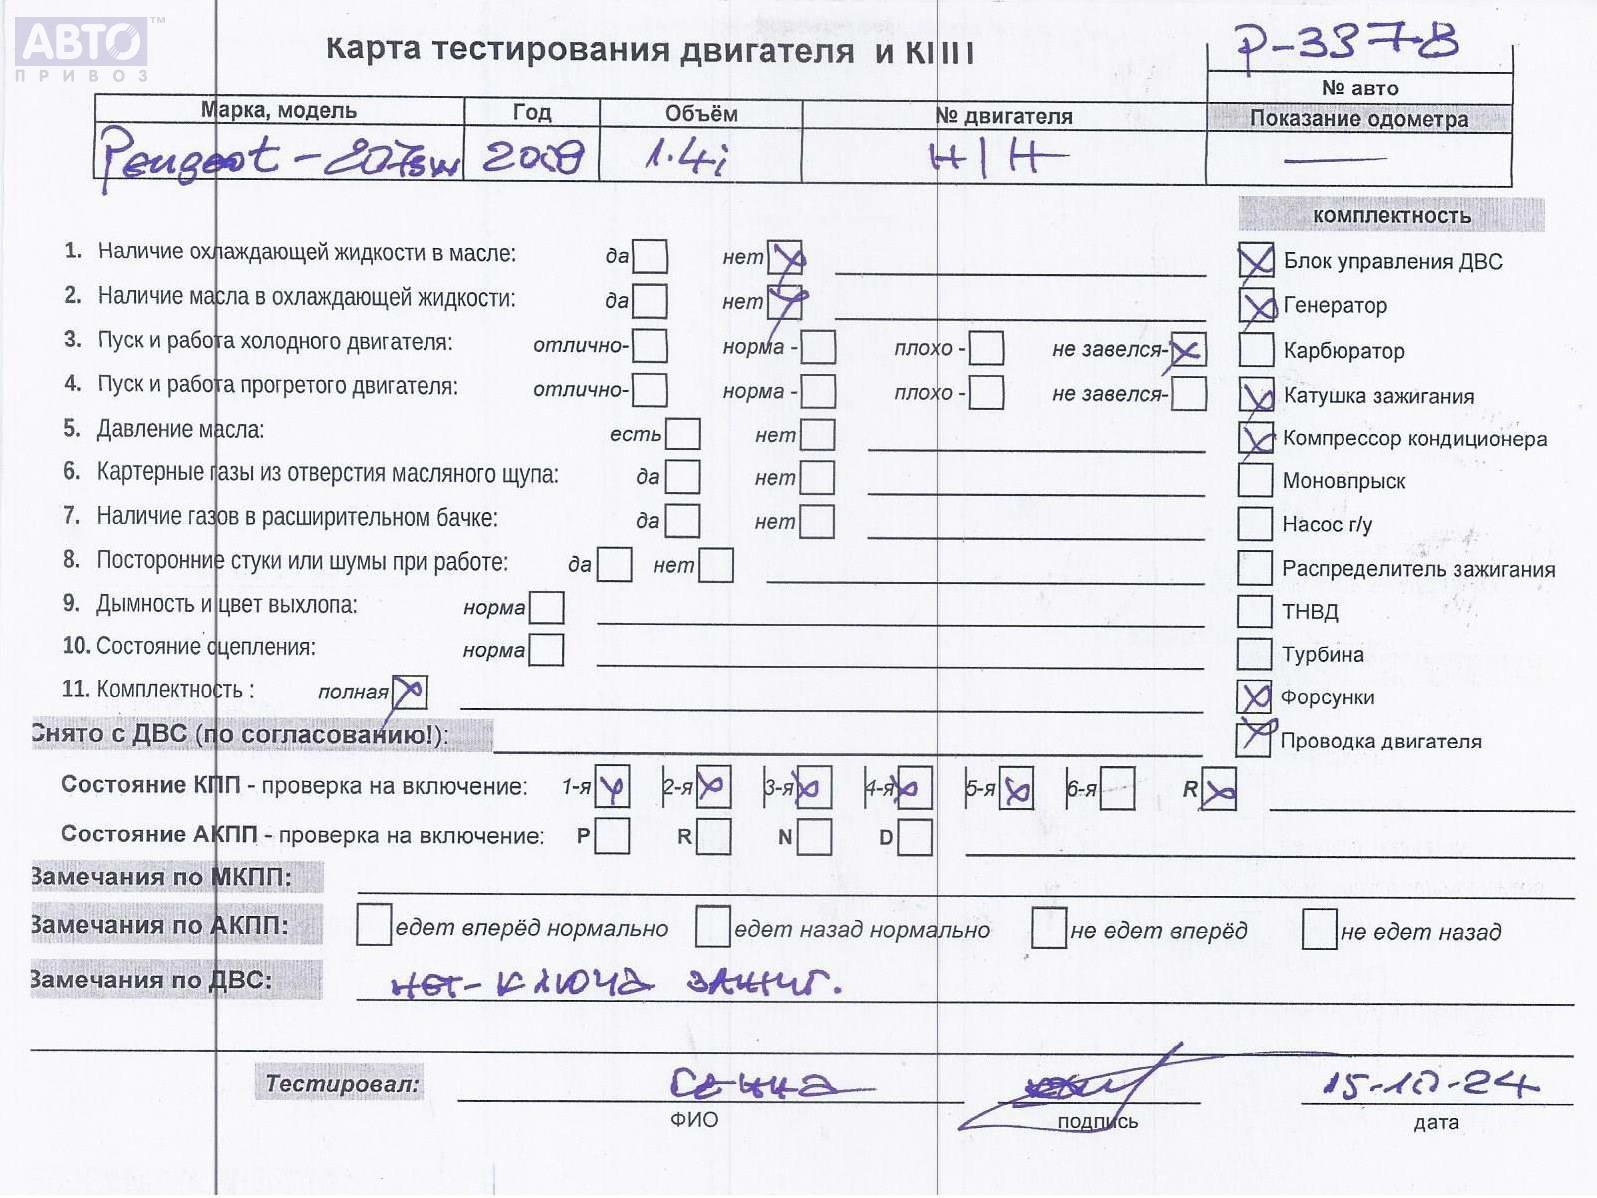 АВТО™
ПРИВОЗ
Карта тестирования двигателя и КПП
Р-3378
№ авто
Марка, модель Год Объём № двигателя Показание одометра
Peugeot - 207sw 2008 1.4i Н/Н —
комплектность
1. Наличие охлаждающей жидкости в масле: да нет
Блок управления ДВС
2. Наличие масла в охлаждающей жидкости: да нет
Генератор
3. Пуск и работа холодного двигателя: отлично- норма - плохо - не завелся-
Карбюратор
4. Пуск и работа прогретого двигателя: отлично- норма - плохо - не завелся-
Катушка зажигания
5. Давление масла: есть нет
Компрессор кондиционера
6. Картерные газы из отверстия масляного щупа: да нет
Моновпрыск
7. Наличие газов в расширительном бачке: да нет
Насос г/у
8. Посторонние стуки или шумы при работе: да нет
Распределитель зажигания
9. Дымность и цвет выхлопа: норма
ТНВД
10. Состояние сцепления: норма
Турбина
11. Комплектность : полная
Форсунки
Снято с ДВС (по согласованию!):
Проводка двигателя
Состояние КПП - проверка на включение: 1-я 2-я 3-я 4-я 5-я 6-я R
Состояние АКПП - проверка на включение: P R N D
Замечания по МКПП:
Замечания по АКПП: едет вперёд нормально едет назад нормально не едет вперёд не едет назад
Замечания по ДВС: нет - ключа зажиг.
Тестировал: 15-10-24
ФИО подпись дата